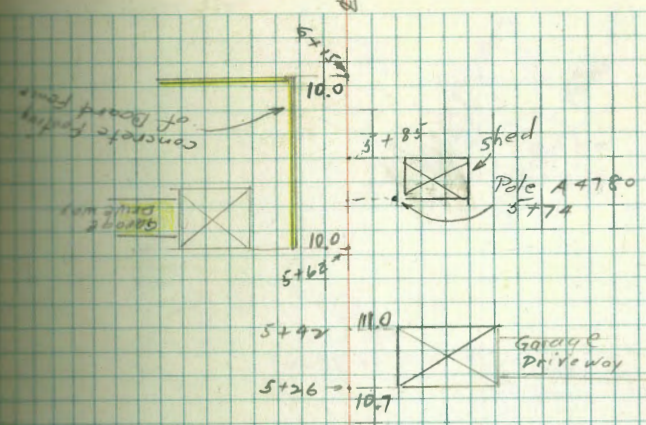 10.0
concrete footing
of Board Fence
5 + 85
Shed
Pole A 4780
5 + 74
Garage
Driveway
10.0
5+62
5+42
11.0
Garage
Driveway
5+26
10.7